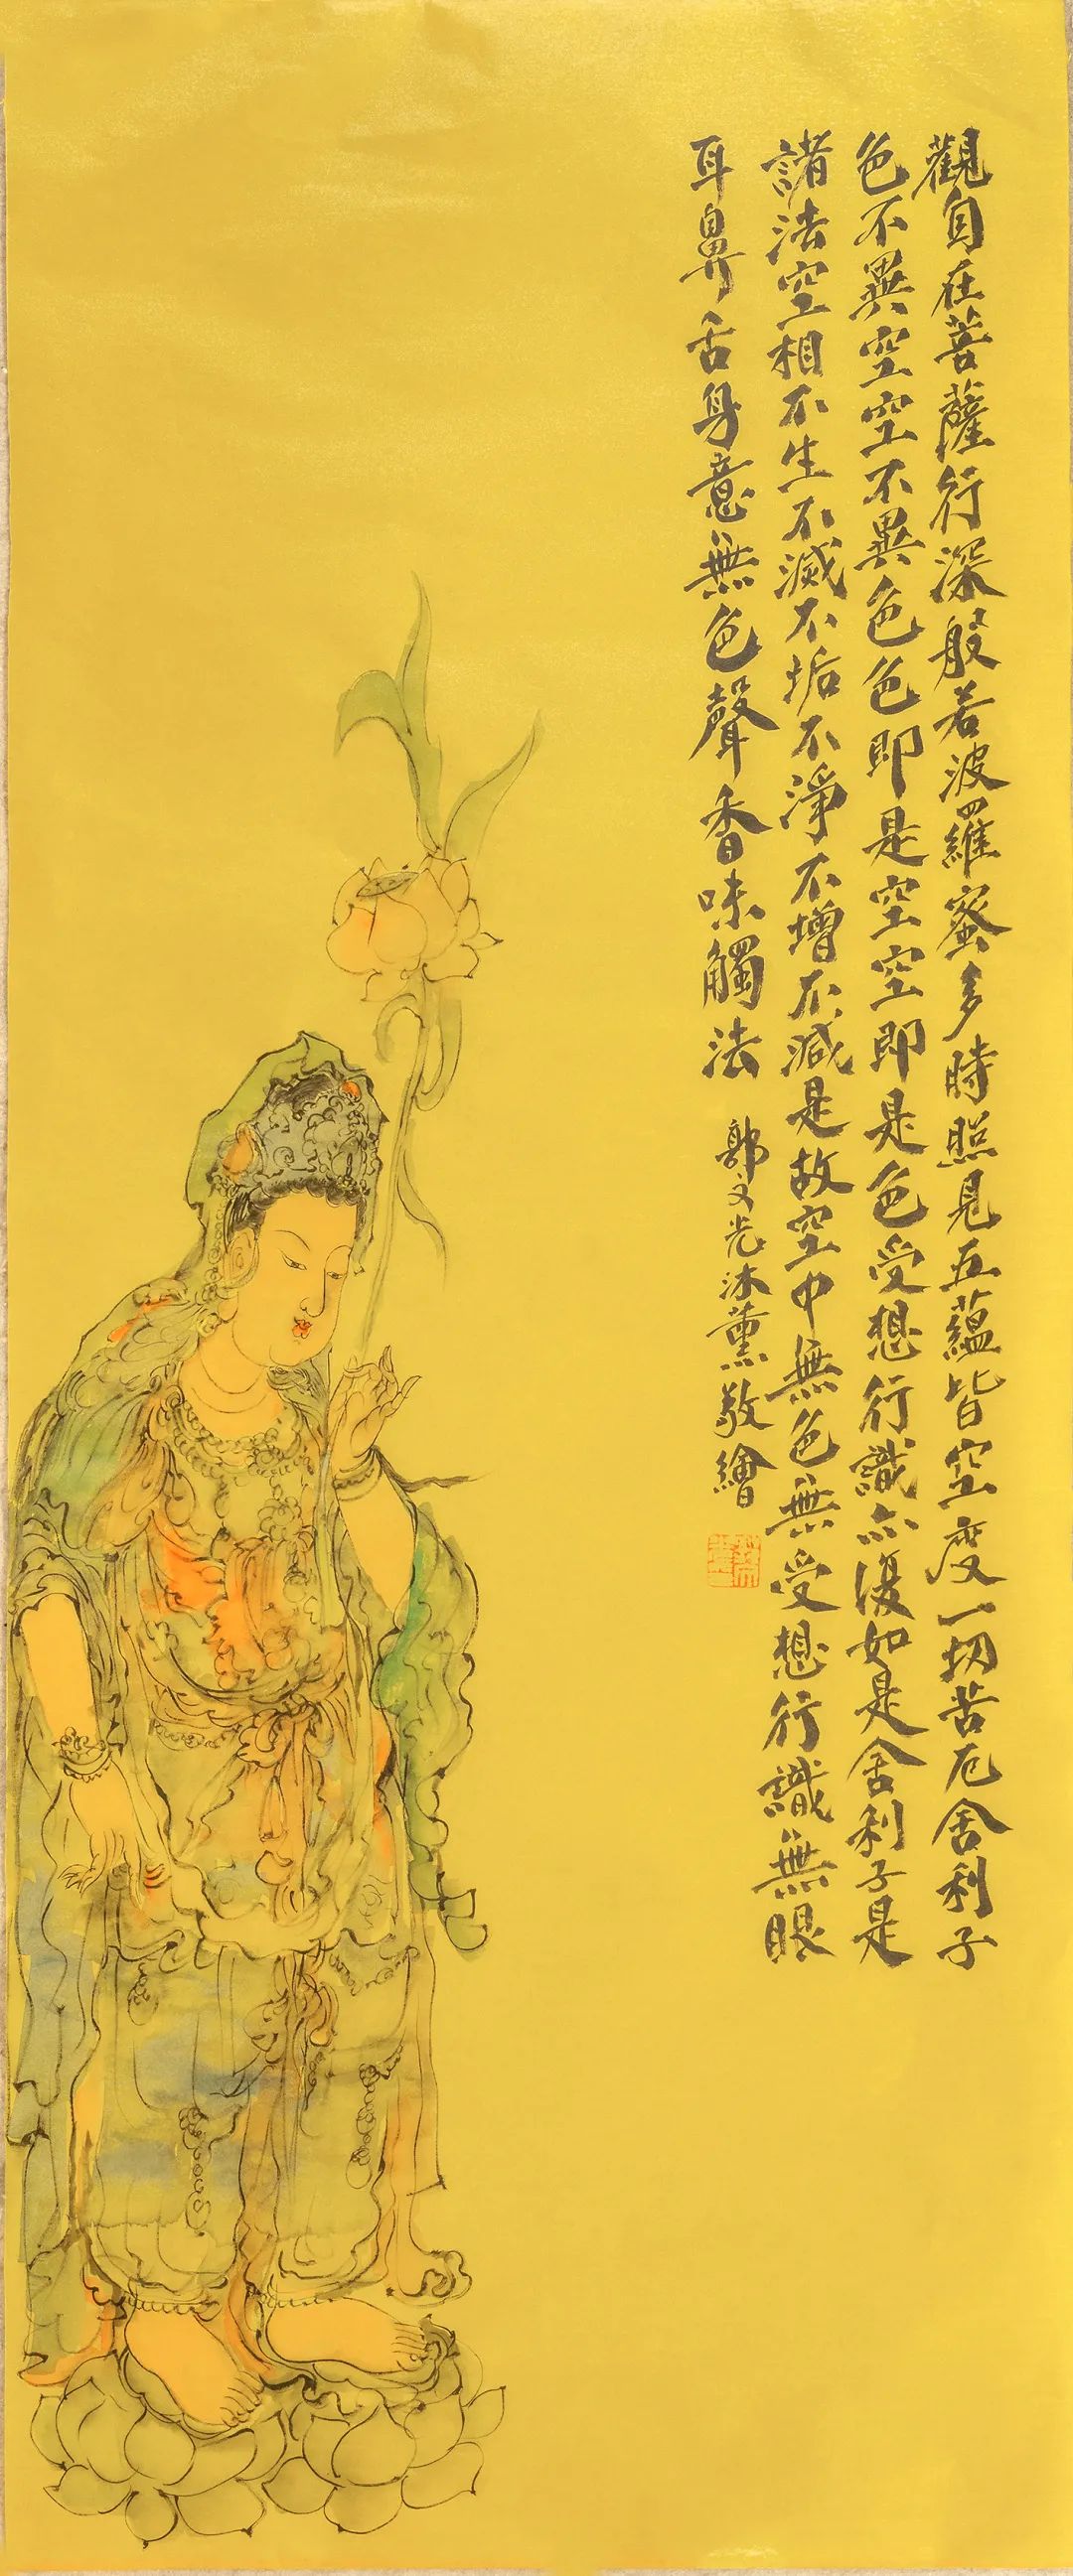 觀自在菩薩行深般若波羅蜜多時照見五蘊皆空度一切苦厄舍利子
色不異空空不異色色即是空空即是色受想行識亦復如是舍利子是
諸法空相不生不滅不垢不淨不增不減是故空中無色無受想行識無眼
耳鼻舌身意無色聲香味觸法 郭文光沐薰敬繪